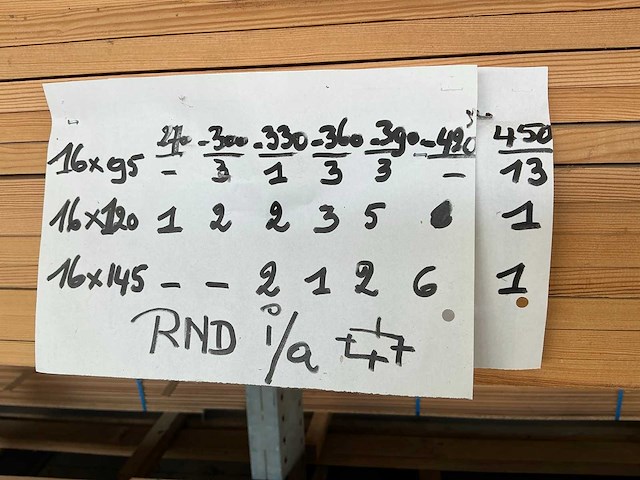 270 -300 -330 -360 -390 -420 450
16x95 - 3 1 3 3 - 13
16x120 1 2 2 3 5 1
16x145 - - 2 1 2 6 1
RND i/a